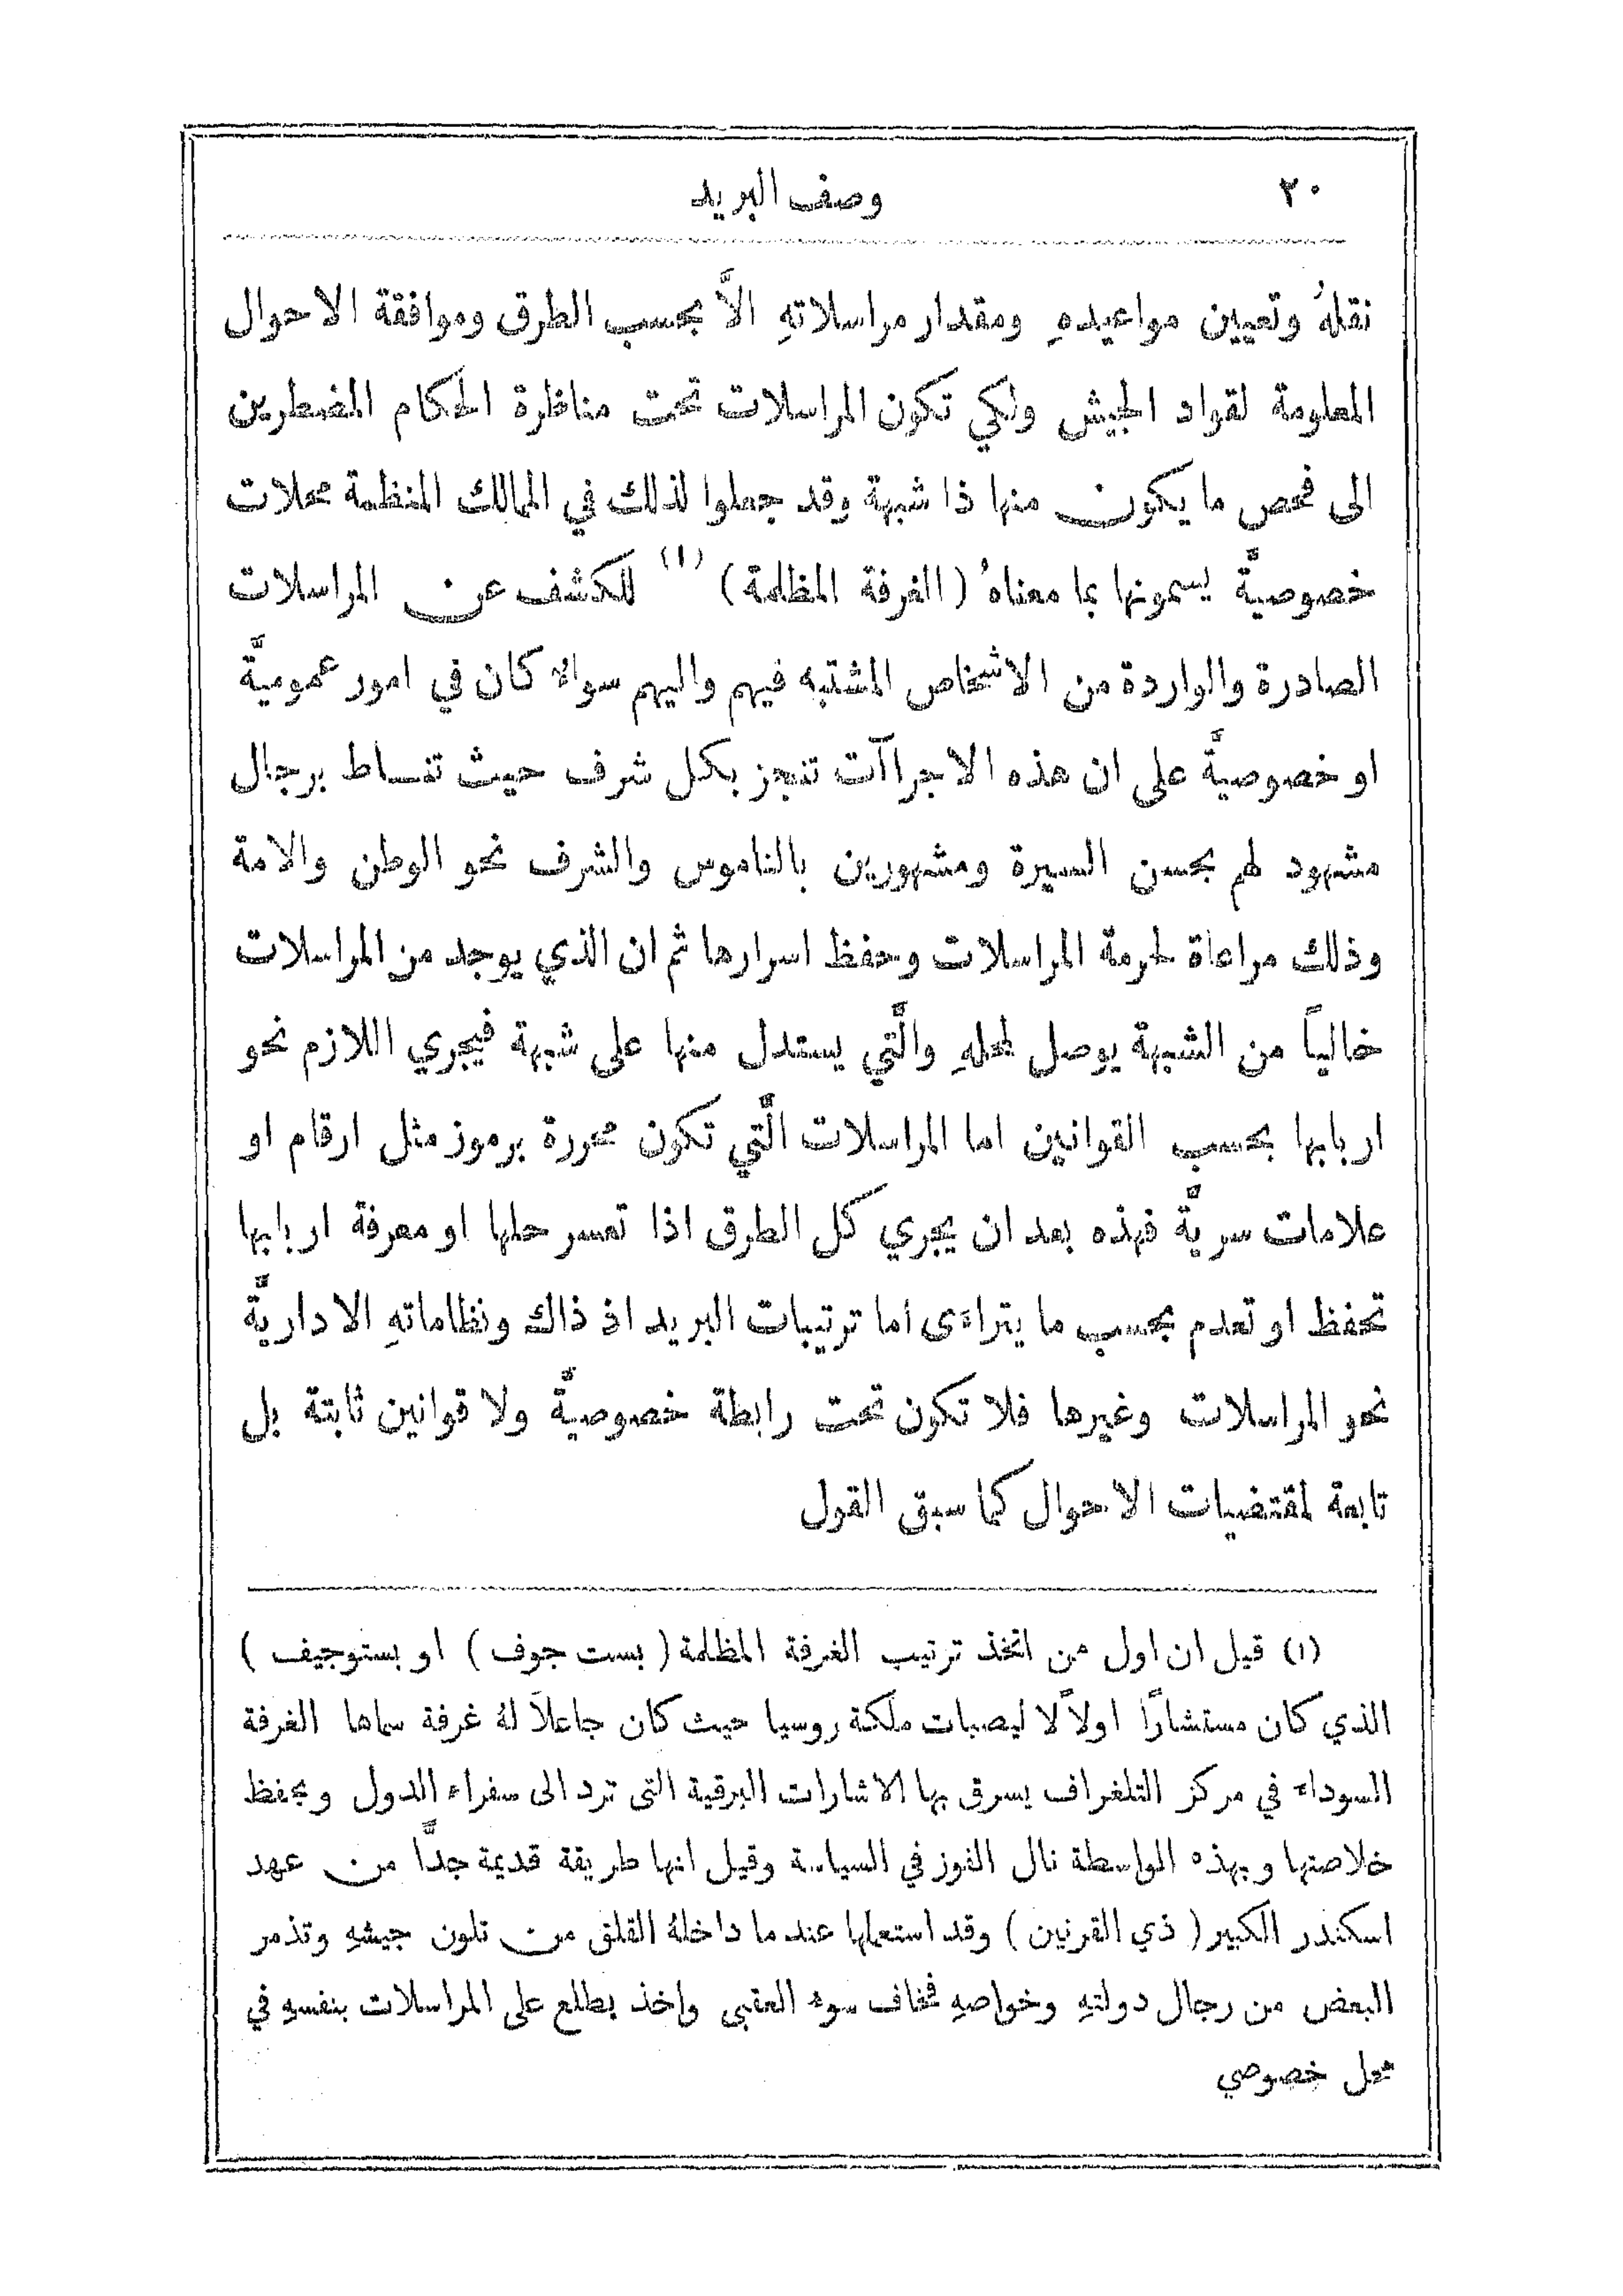 ٢٠
وصف البريد
نقلهُ وتعيين مواعيدهِ ومقدار مراسلاتهِ الاَّ بحسب الطرق وموافقة الاحوال
المعلومة لقواد الجيش ولكي تكون المراسلات تحت مناظرة الحكام المضطرين
الى فحص ما يكون منها ذا شبهة وقد جعلوا لذلك في الممالك المنظمة محلات
خصوصيَّة يسمونها بما معناهُ (الغرفة المظلمة) (١) للكشف عن المراسلات
الصادرة والواردة من الاشخاص المشتبه فيهم واليهم سواءٌ كان في امور عموميَّة
او خصوصيَّة على ان هذه الاجراآت تنجز بكل شرف حيث تنساط برجال
مشهود لهم بحسن السيرة ومشهورين بالناموس والشرف نحو الوطن والامة
وذلك مراعاة لحرمة المراسلات وحفظ اسرارها ثم ان الذي يوجد من المراسلات
خالياً من الشبهة يوصل لمحلهِ والَّتي يستدل منها على شبهة فيجري اللازم نحو
اربابها بحسب القوانين اما المراسلات الَّتي تكون محررة برموز مثل ارقام او
علامات سريَّة فهذه بعد ان يجري كل الطرق اذا تعسر حلها او معرفة اربابها
تحفظ او تعدم بحسب ما يتراءَى اما ترتيبات البريد اذ ذاك ونظاماتهِ الاداريَّة
نحو المراسلات وغيرها فلا تكون تحت رابطة خصوصيَّة ولا قوانين ثابتة بل
تابعة لمقتضيات الاحوال كما سبق القول
(١) قيل ان اول من اتخذ ترتيب الغرفة المظلمة (بست جوف) او بستوجيف)
الذي كان مستشارًا اولاً لاليصبات ملكة روسيا حيث كان جاعلاً لهُ غرفة سماها الغرفة
السوداء في مركز التلغراف يسرق بها الاشارات البرقية التى ترد الى سفراء الدول ويحفظ
خلاصتها وبهذه الواسطة نال الفوز في السياسة وقيل انها طريقة قديمة جدًّا من عهد
اسكندر الكبير (ذي القرنين) وقد استعملها عند ما داخلهُ القلق من تلون جيشهِ وتذمر
البعض من رجال دولتهِ وخواصهِ فخاف سوء العقبى واخذ يطلع على المراسلات بنفسهِ في
محل خصوصي